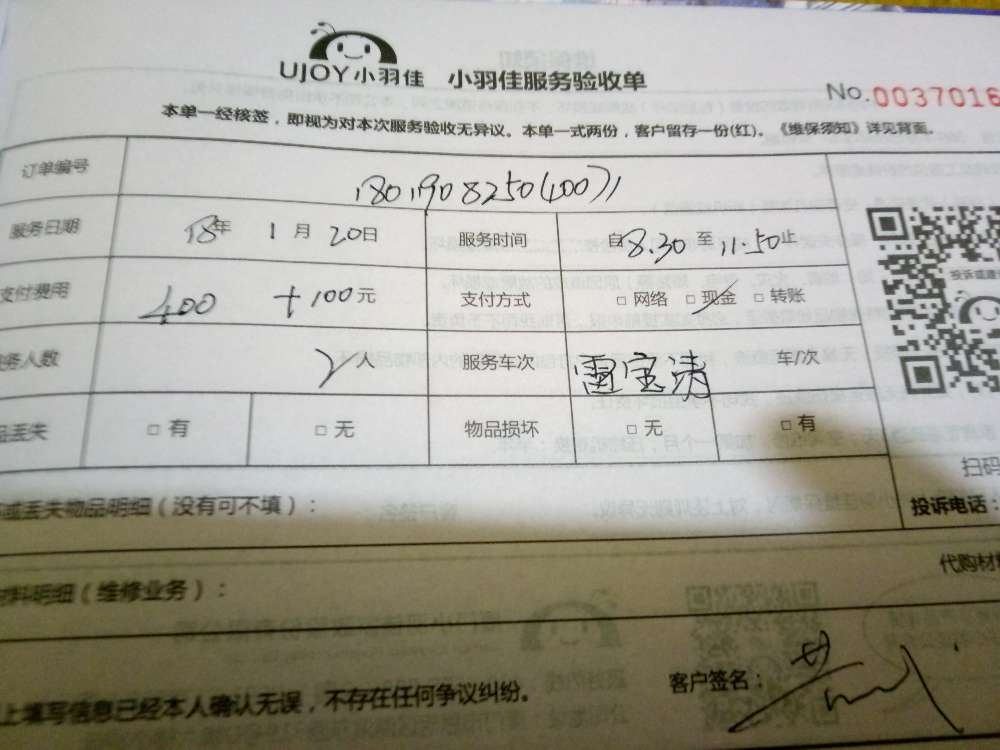 UJOY小羽佳 小羽佳服务验收单
No.0037016
本单一经核签，即视为对本次服务验收无异议。本单一式两份，客户留存一份(红)。《维保须知》详见背面。
订单编号 1801908250(400)1
服务日期 18年 1月 20日 服务时间 自8.30至11.50止
支付费用 400 +100元 支付方式 □ 网络 □ 现金 □ 转账
务人数 2人 服务车次 雷宝涛 车/次
品丢失 □ 有 □ 无 物品损坏 □ 无 □ 有
投诉或建
扫码
或丢失物品明细（没有可不填）：
投诉电话：
材料明细（维修业务）：
代购材
上填写信息已经本人确认无误，不存在任何争议纠纷。
客户签名：